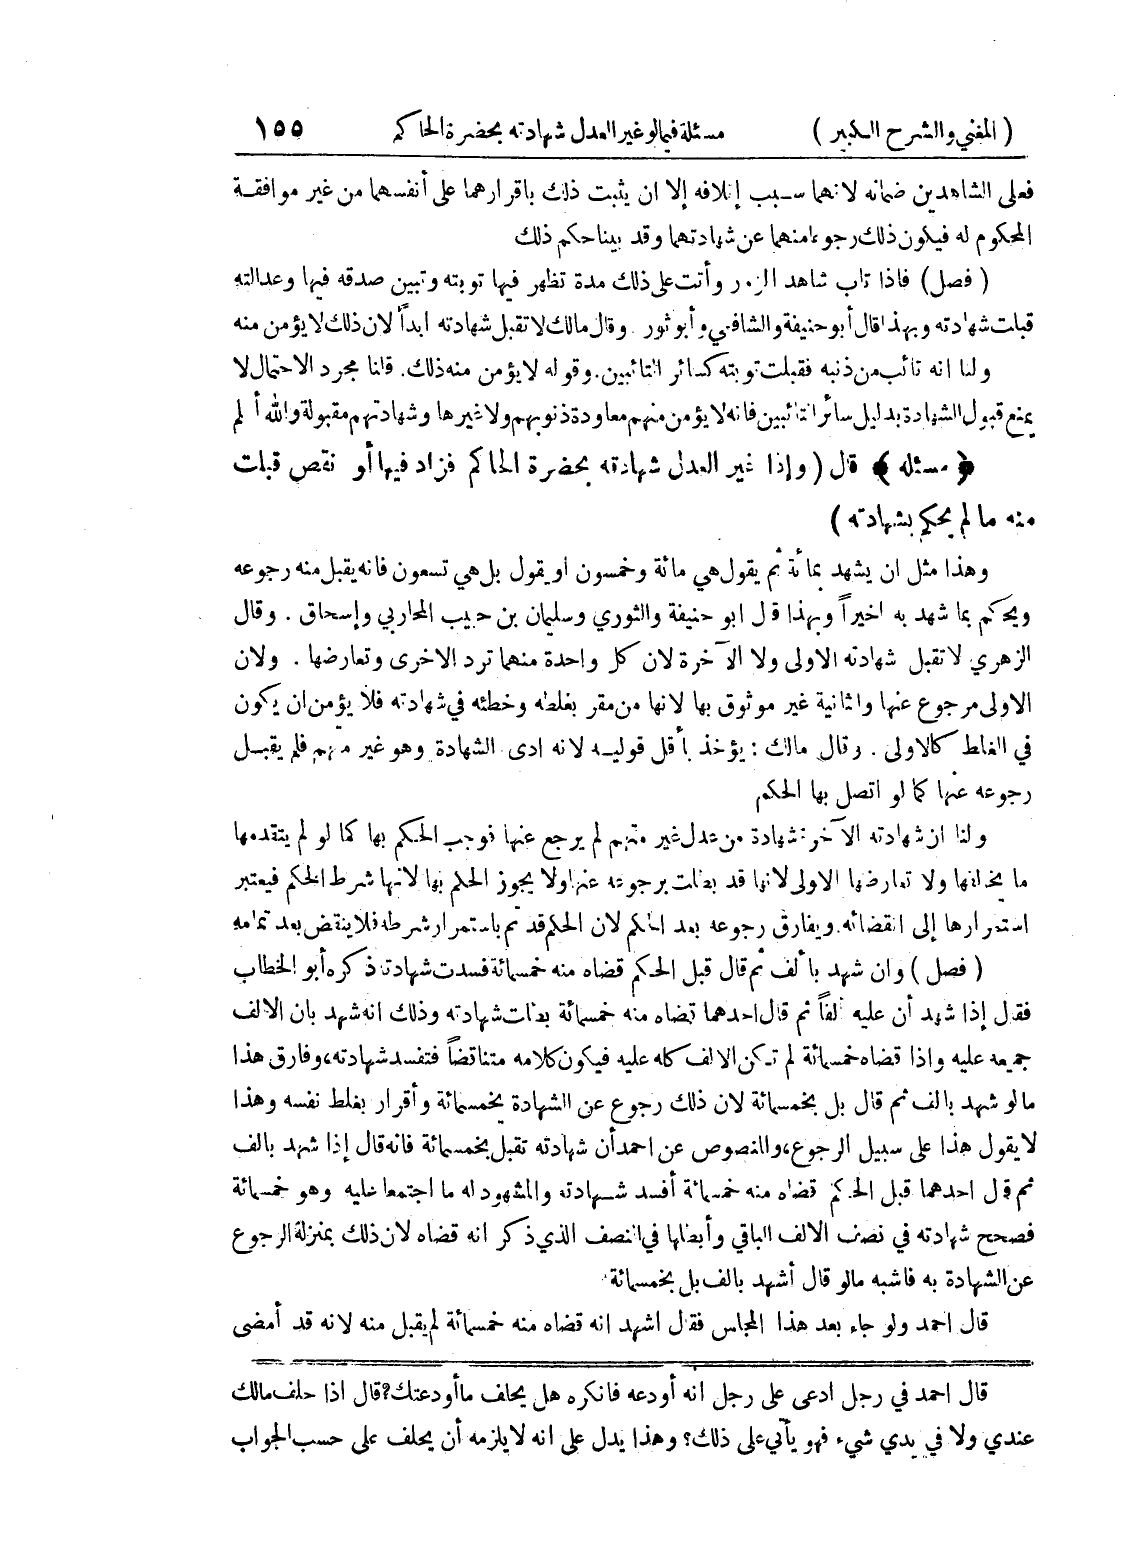 ( المغني والشرح الكبير ) مسئلة فيما لو غير العدل شهادته بحضرة الحاكم ١٥٥
فعلى الشاهدين ضمانه لانهما سبب إتلافه إلا ان يثبت ذلك باقرارهما على أنفسهما من غير موافقة
المحكوم له فيكون ذلك رجوعا منهما عن شهادتهما وقد بينا حكم ذلك
( فصل ) فاذا تاب شاهد الزور وأتت على ذلك مدة تظهر فيها توبته وتبين صدقه فيها وعدالته
قبلت شهادته وبهذا قال أبو حنيفة والشافعي وأبو ثور . وقال مالك لا تقبل شهادته ابداً لان ذلك لا يؤمن منه
ولنا انه تائب من ذنبه فقبلت توبته كسائر التائبين . وقوله لا يؤمن منه ذلك . قلنا مجرد الاحتمال لا
يمنع قبول الشهادة بدليل سائر التائبين فانه لا يؤمن منهم معاودة ذنوبهم ولا غيرها وشهادتهم مقبولة والله أعلم
﴿ مسئلة ﴾ قال ( وإذا غير العدل شهادته بحضرة الحاكم فزاد فيها أو نقص قبلت
منه ما لم يحكم بشهادته )
وهذا مثل ان يشهد بمائة ثم يقول هي مائة وخمسون او يقول بل هي تسعون فانه يقبل منه رجوعه
ويحكم بما شهد به اخيراً وبهذا قال ابو حنيفة والثوري وسليمان بن حبيب المحاربي وإسحاق . وقال
الزهري لا تقبل شهادته الاولى ولا الآخرة لان كل واحدة منهما ترد الاخرى وتعارضها . ولان
الاولى مرجوع عنها والثانية غير موثوق بها لانها من مقر بغلطه وخطئه في شهادته فلا يؤمن ان يكون
في الغلط كالاولى . وقال مالك : يؤخذ بأقل قوليه لانه ادى الشهادة وهو غير متهم فلم يقبل
رجوعه عنها كما لو اتصل بها الحكم
ولنا ان شهادته الآخرة شهادة من عدل غير متهم لم يرجع عنها فوجب الحكم بها كما لو لم يتقدمها
ما يخالفها ولا تعارضها الاولى لانها قد بطلت برجوعه عنها ولا يجوز الحكم بها لانها شرط الحكم فيعتبر
استمرارها إلى انقضائه ويفارق رجوعه بعد الحكم لان الحكم قد تم باستمرار شرطه فلا ينقض بعد تمامه
( فصل ) وان شهد بألف ثم قال قبل الحكم قضاه منه خمسمائة فسدت شهادته ذكره أبو الخطاب
فقال إذا شهد أن عليه ألفاً ثم قال احدهما قضاه منه خمسمائة بطلت شهادته وذلك انه شهد بان الالف
جميعه عليه واذا قضاه خمسمائة لم تكن الالف كله عليه فيكون كلامه متناقضاً فتفسد شهادته، وفارق هذا
مالو شهد بالف ثم قال بل بخمسمائة لان ذلك رجوع عن الشهادة بخمسمائة وأقرار بغلط نفسه وهذا
لا يقول هذا على سبيل الرجوع، والمنصوص عن احمد أن شهادته تقبل بخمسمائة فانه قال إذا شهد بالف
ثم قال احدهما قبل الحكم قضاه منه خمسمائة أفسد شهادته والمشهود له ما اجتمعا عليه وهو خمسمائة
فصحح شهادته في نصف الالف الباقي وأبطلها في النصف الذي ذكر انه قضاه لان ذلك بمنزلة الرجوع
عن الشهادة به فاشبه مالو قال أشهد بالف بل بخمسمائة
قال احمد ولو جاء بعد هذا المجلس فقال اشهد انه قضاه منه خمسمائة لم يقبل منه لانه قد أمضى
قال احمد في رجل ادعى على رجل انه أودعه فانكره هل يحلف ما أودعتك؟ قال اذا حلف مالك
عندي ولا في يدي شيء فهو يأتي على ذلك؟ وهذا يدل على انه لا يلزمه أن يحلف على حسب الجواب